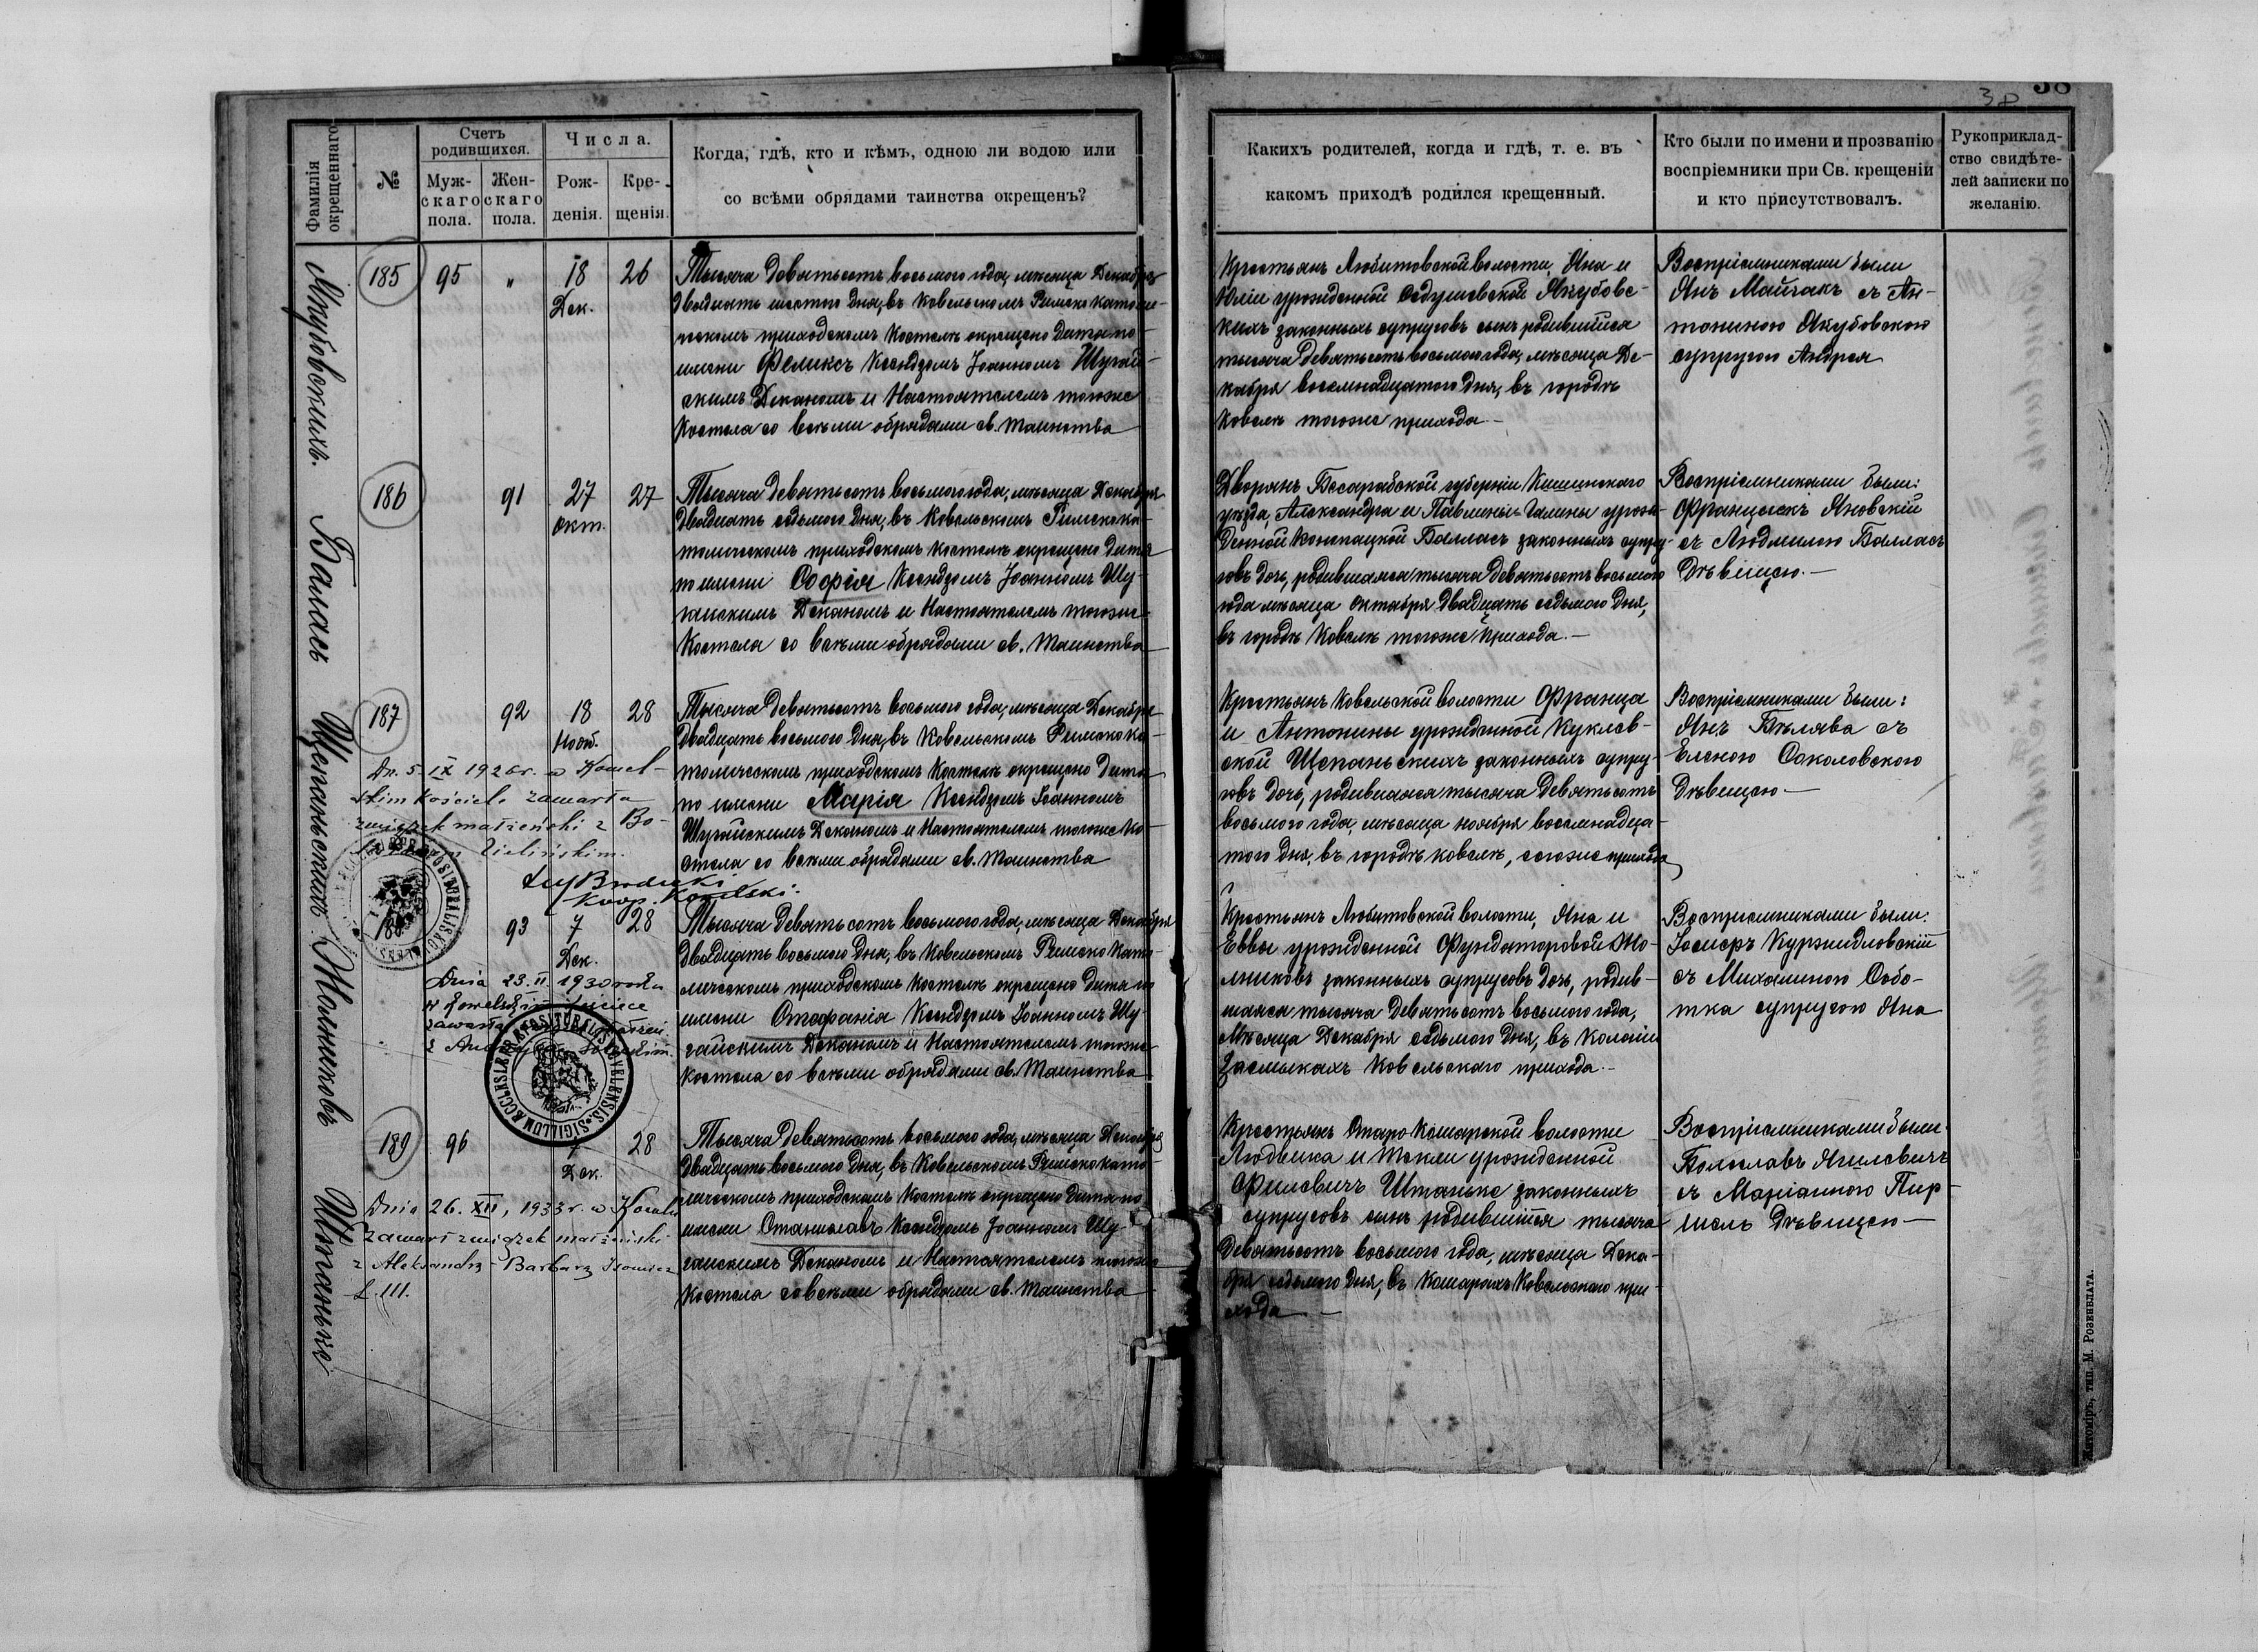 38
38
Фамилія окрещеннаго
№
Счетъ родившихся.
Муж-
скаго
пола.
Жен-
скаго
пола.
Числа.
Рож-
денія.
Кре-
щенія.
Когда, гдѣ, кто и кѣмъ, одною ли водою или
со всѣми обрядами таинства окрещенъ?
Какихъ родителей, когда и гдѣ, т. е. въ
какомъ приходѣ родился крещенный.
Кто были по имени и прозванію
воспріемники при Св. крещеніи
и кто присутствовалъ.
Рукоприклад-
ство свидѣте-
лей записки по
желанію.
Якубовскихъ.
185 95 " 18 26
Дек.
Тысяча девятьсотъ восьмого года, мѣсяца Декабря
двадцать шестого дня, въ Ковельскомъ Римско католи-
ческомъ приходскомъ костелѣ окрещено дитя по
имени Феликсъ Ксендзомъ Іоанномъ Шугай-
скимъ Деканомъ и Настоятелемъ тогоже
костела со всѣми обрядами св. таинства
Крестьянъ Любитовской волости, Яна и
Юліи урожденной Седушевской Якубовс-
кихъ законныхъ супруговъ сынъ родившійся
тысяча девятьсотъ восьмого года, мѣсяца Де-
кабря восемнадцатого дня, въ городѣ
Ковелѣ тогоже прихода.
Воспріемниками были
Янъ Майчакъ съ Ан-
тониною Якубовскою
супругою Андрея
Балласъ
186 91 27 27
окт.
Тысяча девятьсотъ восьмого года, мѣсяца Декабря
двадцать седьмого дня, въ Ковельскомъ Римскока-
толическомъ приходскомъ костелѣ окрещено дитя
по имени Софія Ксендзомъ Іоанномъ Шу-
гайскимъ Деканомъ и Настоятелемъ тогоже
Костела со всѣми обрядами св. таинства
Дворянъ Бесарабской губерніи Кишинскаго
уѣзда, Александра и Павлины-Галины урож-
денной Конопацкой Балласъ законныхъ супру-
говъ дочь, родившаяся тысяча девятьсотъ восьмого
года мѣсяца октября двадцать седьмого дня,
въ городѣ Ковелѣ тогоже прихода.
Воспріемниками были:
Францыскъ Яновскій
съ Людмилою Балласъ
Дѣвицею.
Щепаньскихъ
187 92 18 28
Нояб.
Тысяча девятьсотъ восьмого года, мѣсяца Декабря
двадцать восьмого дня, въ Ковельскомъ Римскока-
толическомъ приходскомъ костелѣ окрещено дитя
по имени Марія Ксендзомъ Іоанномъ
Шугайскимъ Деканомъ и Настоятелемъ тогоже Ко-
стела со всѣми обрядами св. таинства
Dn. 5 IX 1926 r. w Kowel-
skim kościele zawarła
związek małżeński z Bo-
Zielińskim.
Koop. Kowelski.
Крестьянъ Ковельской волости Франца
и Антонины урожденной Куклев-
ской Щепаньскихъ законныхъ супру-
говъ дочь, родившаяся тысяча девятьсотъ
восьмого года, мѣсяца ноября восемнадца-
того дня, въ городѣ Ковелѣ, тогоже прихода
Воспріемниками были:
Янъ Бѣлява съ
Еленою Соколовскою
Дѣвицею
Жолниковъ
188 93 7 28
Дек.
Тысяча девятьсотъ восьмого года, мѣсяца Декабря
двадцать восьмого дня, въ Ковельскомъ Римско Като-
лическомъ приходскомъ костелѣ окрещено дитя по
имени Стефанія Ксендзомъ Іоанномъ Шу-
гайскимъ Деканомъ и Настоятелемъ тогоже
костела со всѣми обрядами св. таинства
Dnia 23. II 1930 roku
w Kowelskim
zawarła
SIGILLUM ECCLESIAE PRAEPOSITURALIS KOVELENSIS
Крестьянъ Любитовской волости, Яна и
Еввы урожденной Фундаторовой Жо-
лниковъ законныхъ супруговъ дочь, родив-
шаяся тысяча девятьсотъ восьмого года,
мѣсяца Декабря седьмого дня, въ колоніи
Засмыкахъ Ковельскаго прихода.
Воспріемниками были:
Іосифъ Куржидловскій
съ Михалиною Собо-
тка супругою Яна
Штаньке
189 96 7 28
Дек.
Тысяча девятьсотъ восьмого года, мѣсяца Декабря
двадцать восьмого дня, въ Ковельскомъ Римскокато-
лическомъ приходскомъ костелѣ окрещено дитя по
имени Станиславъ Ксендзомъ Іоанномъ Шу-
гайскимъ Деканомъ и Настоятелемъ тогоже
костела совсѣми обрядами св. таинства
Dnia 26. XII, 1933 r. w Kowlu
zawarł związek małżeński
z Aleksandrą-Barbarą
L. 111.
Крестьянъ Старо-Кошарской волости
Людвика и Текли урожденной
Филевичъ Штаньке законныхъ
супруговъ сынъ родившійся тысяча
девятьсотъ восьмого года, мѣсяца Дека-
бря седьмого дня, въ Кошарахъ Ковельскаго при-
хода
Воспріемниками были
Болеславъ Ягилевичъ
съ Маріанною Пир-
Дѣвицею
Житоміръ, тип. М. Розенблата.